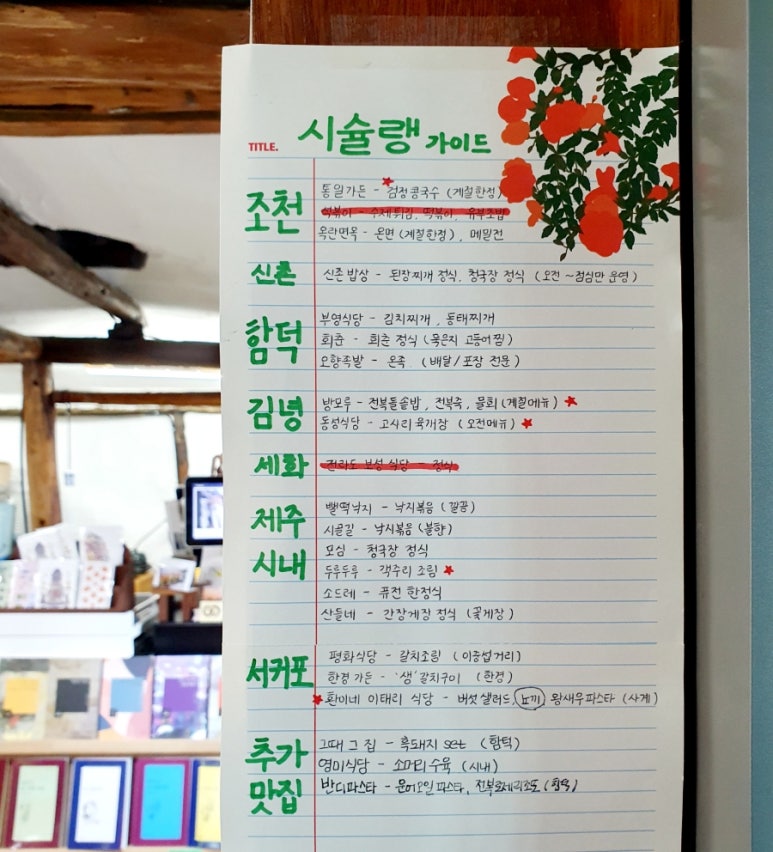 TITLE. 시슐랭 가이드
조천
통일가든 - 검정콩국수 (계절한정)
떡볶이 - 수제튀김, 떡볶이, 유부초밥
옥란면옥 - 온면 (계절한정), 메밀전
신촌
신촌 밥상 - 된장찌개 정식, 청국장 정식 (오전 ~점심만 운영)
함덕
부영식당 - 김치찌개, 동태찌개
회춘 - 회춘 정식 (묵은지 고등어찜)
오향족발 - 온족 (배달/포장 전문)
김녕
방모루 - 전복돌솥밥, 전복죽, 물회 (계절메뉴)
동성식당 - 고사리 육개장 (오전메뉴)
세화
전라도 보성 식당 - 정식
제주
시내
뻘떡낙지 - 낙지볶음 (깔끔)
시골길 - 낙지볶음 (불향)
모심 - 청국장 정식
두루두루 - 객주리 조림
소드레 - 퓨전 한정식
산들네 - 간장게장 정식 (꽃게장)
서귀포
평화식당 - 갈치조림 (이중섭거리)
한경가든 - '생'갈치구이 (한경)
환이네 이태리 식당 - 버섯 샐러드, 뇨끼, 왕새우파스타 (사계)
추가
맛집
그때 그 집 - 흑돼지 set (함덕)
영미식당 - 소머리 수육 (시내)
반디파스타 - 문어오일파스타, (함덕)